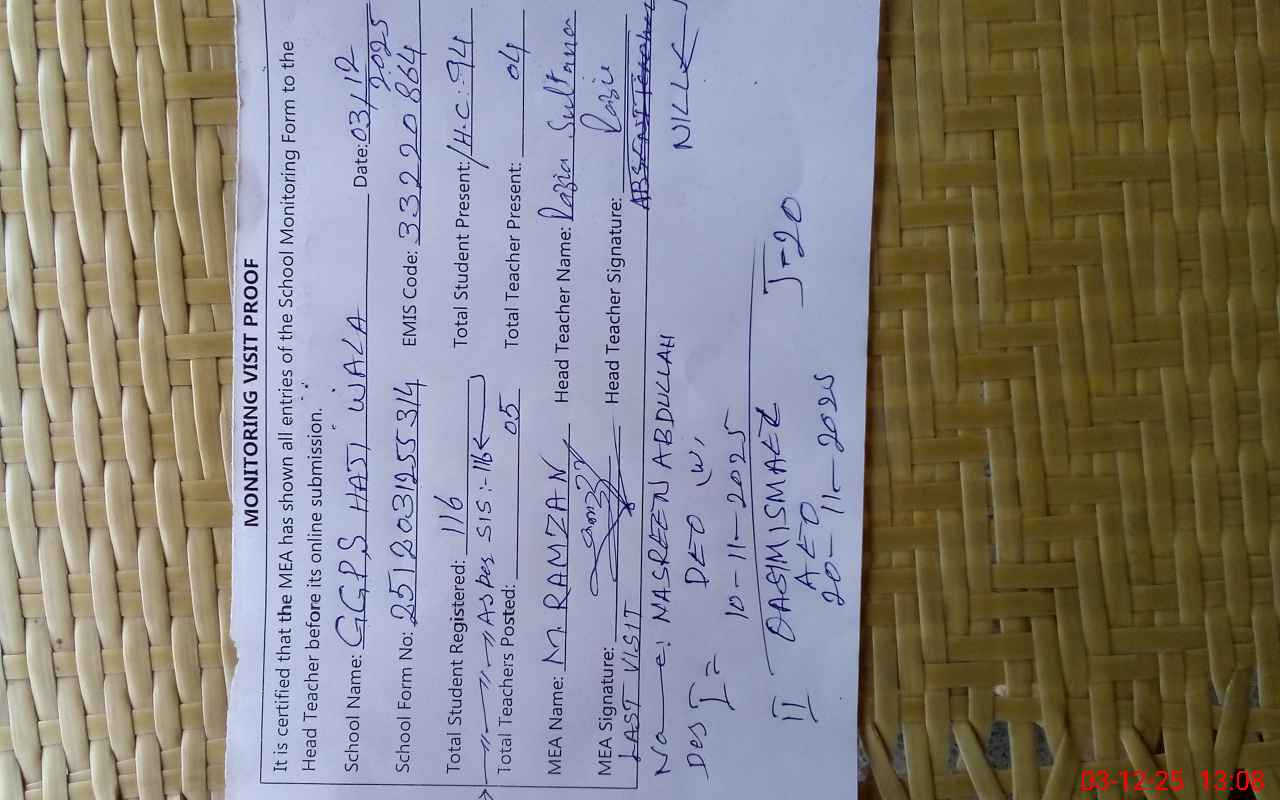 MONITORING VISIT PROOF
It is certified that the MEA has shown all entries of the School Monitoring Form to the
Head Teacher before its online submission.
School Name: GGPS HAJI WALA Date: 03/12 2025
School Form No: 25120312553/4 EMIS Code: 33220864
Total Student Registered: 116 Total Student Present: H.C:94
As per SIS:- 116
Total Teachers Posted: 05 Total Teacher Present: 04
MEA Name: M. RAMZAN Head Teacher Name: Razia Sultana
MEA Signature: Head Teacher Signature: Razia
LAST VISIT ABSENT Teacher
Na—e: NASREEN ABDULLAH NILL
Des DEO (W)
I = 10-11-2025
II QASIM ISMAEL J=20
AEO
20-11-2025
03-12-25 13:08